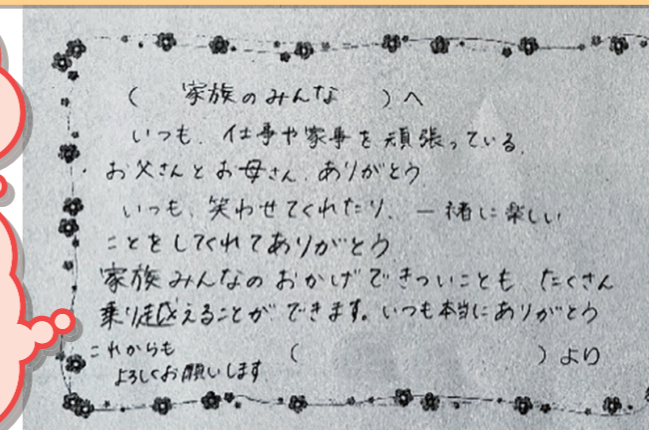 ( 家族のみんな )へ
いつも、仕事や家事を頑張っている、
お父さんとお母さん、ありがとう
いつも、笑わせてくれたり、一緒に楽しい
ことをしてくれてありがとう
家族みんなのおかげできついことも、たくさん
乗り越えることができます。いつも本当にありがとう
これからも
よろしくお願いします
( )より